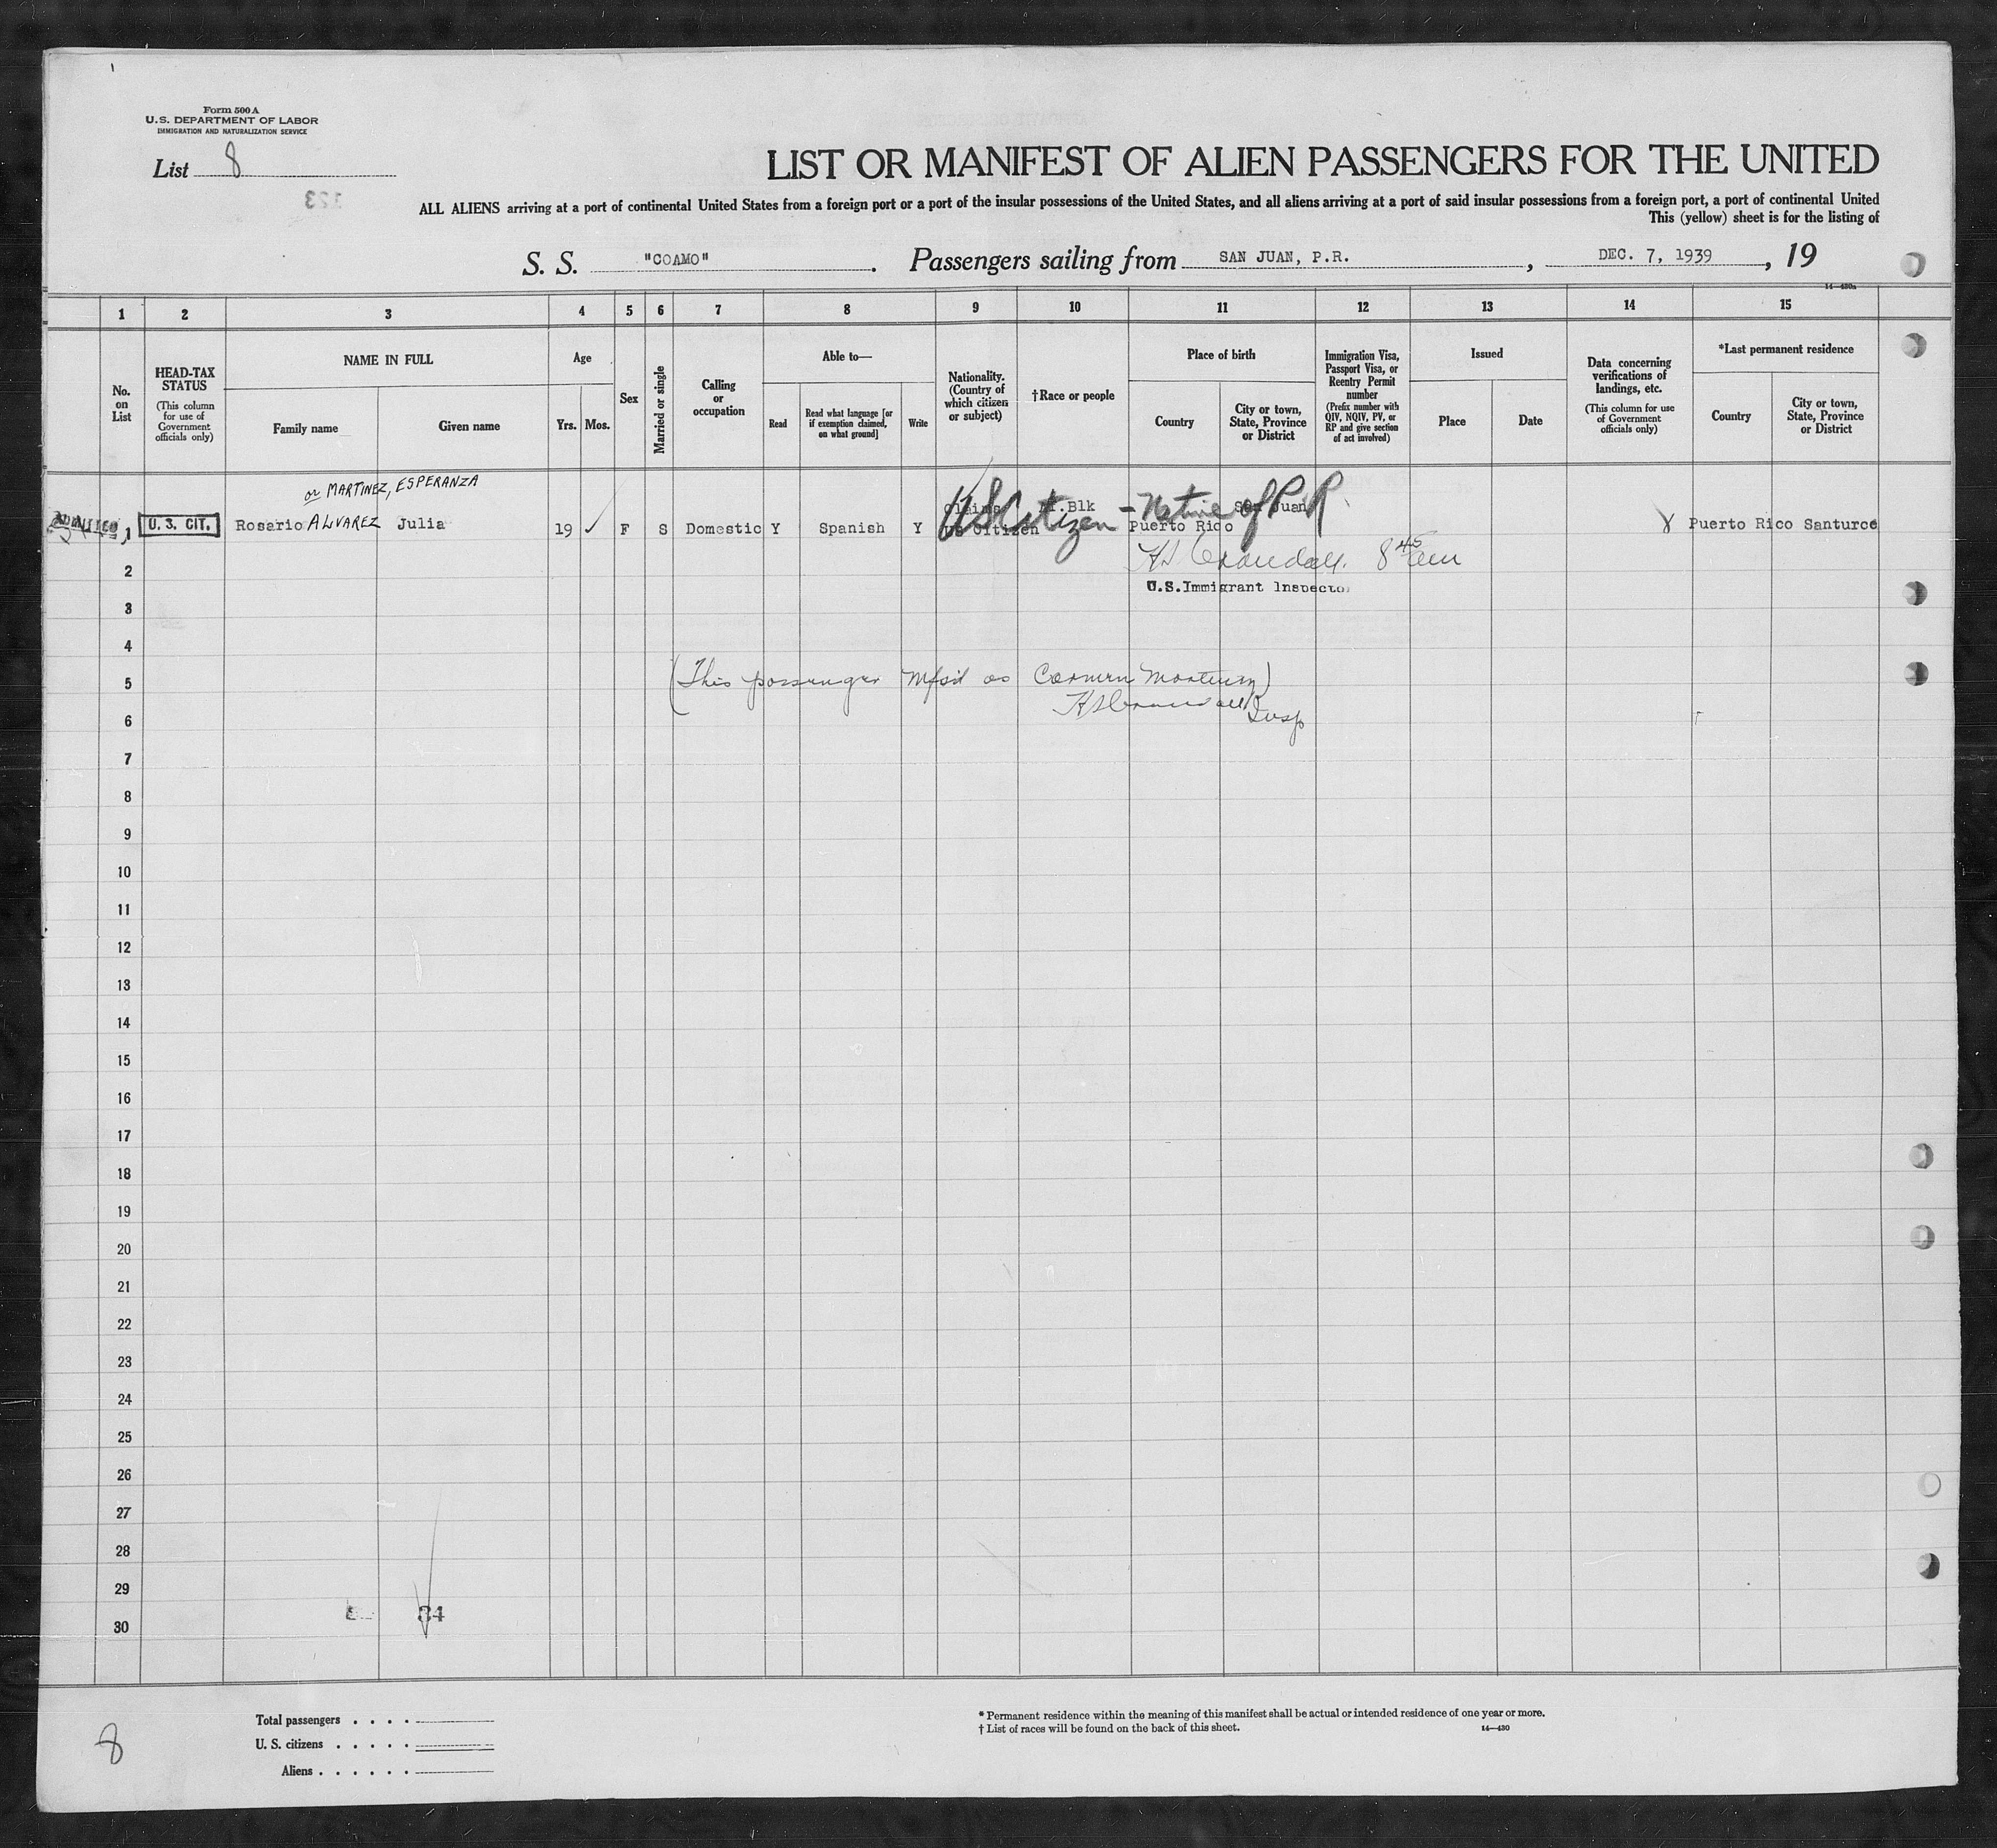 Form 500 A
U.S. DEPARTMENT OF LABOR
IMMIGRATION AND NATURALIZATION SERVICE
List 8
123
LIST OR MANIFEST OF ALIEN PASSENGERS FOR THE UNITED
ALL ALIENS arriving at a port of continental United States from a foreign port or a port of the insular possessions of the United States, and all aliens arriving at a port of said insular possessions from a foreign port, a port of continental United
This (yellow) sheet is for the listing of
S. S. "COAMO". Passengers sailing from SAN JUAN, P.R., DEC. 7, 1939, 19
14—430a
1 2 3 4 5 6 7 8 9 10 11 12 13 14 15
No. on List
HEAD-TAX STATUS
(This column for use of Government officials only)
NAME IN FULL
Family name Given name
Age
Yrs. Mos.
Sex
Married or single
Calling or occupation
Able to—
Read Read what language [or if exemption claimed, on what ground] Write
Nationality. (Country of which citizen or subject)
†Race or people
Place of birth
Country City or town, State, Province or District
Immigration Visa, Passport Visa, or Reentry Permit number
(Prefix number with QIV, NQIV, PV, or RP and give section of act involved)
Issued
Place Date
Data concerning verifications of landings, etc.
(This column for use of Government officials only)
*Last permanent residence
Country City or town, State, Province or District
or MARTINEZ, ESPERANZA
ADMITTED 1 U. S. CIT. Rosario ALVAREZ Julia 19 ✓ F S Domestic Y Spanish Y Claims US Citizen Af.Blk Puerto Rico San Juan Puerto Rico Santurce
US Citizen - Native of P R
H S Crandall. 8 45 am
U.S. Immigrant Inspector
2
3
4
5
(This passenger mfsd as Carmen Martinez)
H S Crandall Insp
6
7
8
9
10
11
12
13
14
15
16
17
18
19
20
21
22
23
24
25
26
27
28
29
84
30
8
Total passengers . . . .
U. S. citizens . . . . .
Aliens . . . . . .
* Permanent residence within the meaning of this manifest shall be actual or intended residence of one year or more.
† List of races will be found on the back of this sheet. 14—430